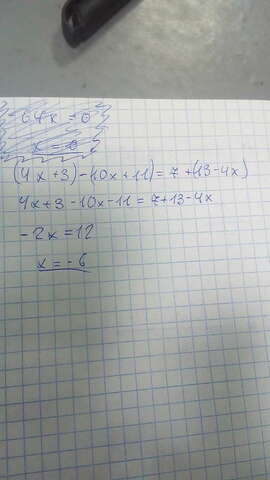 -64x = 0
x = 0
(4x+3)-(10x+11)= 7 +(13-4x)
4x+3 -10x-11 = 7+13-4x
-2x =12
x = -6